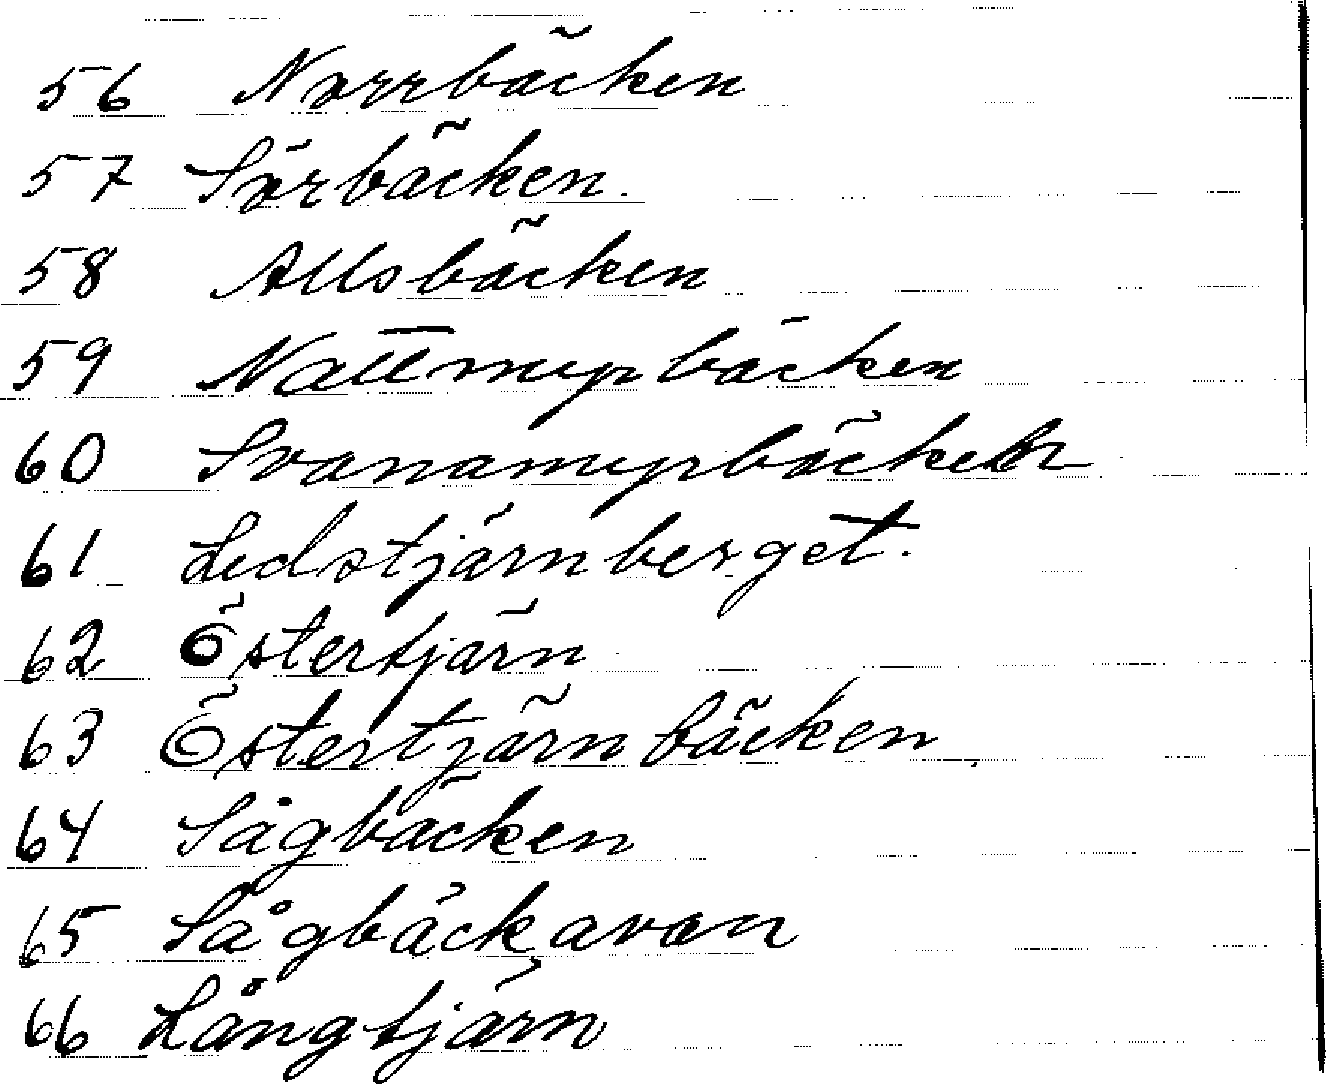 56 Norrbäcken
57 Sörbäcken.
58 Allsbäcken
59 Nattmyrbäcken
60 Svanamyrbäcken
61 Ledstjärnberget.
62 Östertjärn
63 Östertjärnbäcken
64 Sågbäcken
65 Sågbäckavan
66 Långtjärn